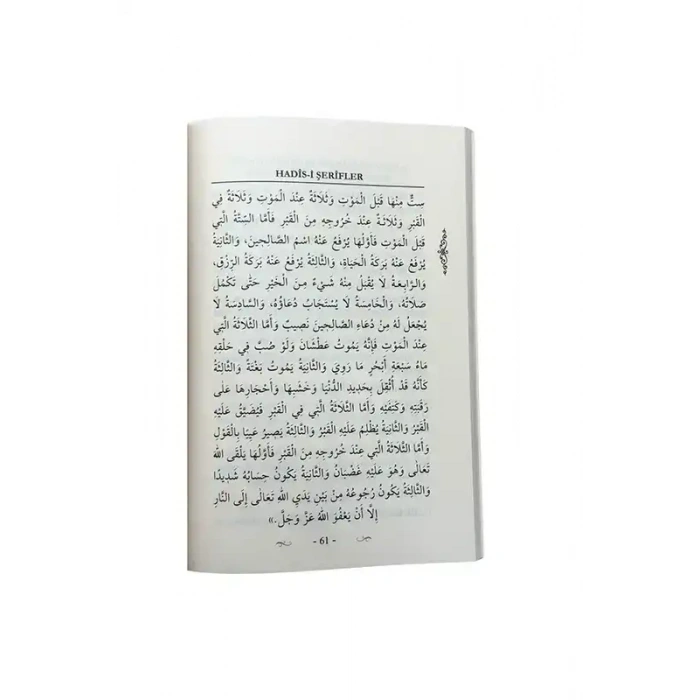 HADİS-İ ŞERİFLER
سِتٌّ مِنْهَا قَبْلَ الْمَوْتِ وَثَلَاثَةٌ عِنْدَ الْمَوْتِ وَثَلَاثَةٌ فِي
الْقَبْرِ وَثَلَاثَةٌ عِنْدَ خُرُوجِهِ مِنَ الْقَبْرِ فَأَمَّا السِّتَّةُ الَّتِي
قَبْلَ الْمَوْتِ فَأَوَّلُهَا يُرْفَعُ عَنْهُ اسْمُ الصَّالِحِينَ، وَالثَّانِيَةُ
يُرْفَعُ عَنْهُ بَرَكَةُ الْحَيَاةِ، وَالثَّالِثَةُ يُرْفَعُ عَنْهُ بَرَكَةُ الرِّزْقِ،
وَالرَّابِعَةُ لَا يُقْبَلُ مِنْهُ شَيْءٌ مِنَ الْخَيْرِ حَتَّى تَكْمُلَ
صَلَاتُهُ، وَالْخَامِسَةُ لَا يُسْتَجَابُ دُعَاؤُهُ، وَالسَّادِسَةُ لَا
يُجْعَلُ لَهُ مِنْ دُعَاءِ الصَّالِحِينَ نَصِيبٌ وَأَمَّا الثَّلَاثَةُ الَّتِي
عِنْدَ الْمَوْتِ فَإِنَّهُ يَمُوتُ عَطْشَانَ وَلَوْ صُبَّ فِي حَلْقِهِ
مَاءُ سَبْعَةِ أَبْحُرٍ مَا رَوِيَ وَالثَّانِيَةُ يَمُوتُ بَغْتَةً وَالثَّالِثَةُ
كَأَنَّهُ قَدْ أُثْقِلَ بِحَدِيدِ الدُّنْيَا وَخَشَبِهَا وَأَحْجَارِهَا عَلَى
رَقَبَتِهِ وَكَتِفَيْهِ وَأَمَّا الثَّلَاثَةُ الَّتِي فِي الْقَبْرِ فَيُضَيَّقُ عَلَيْهِ
الْقَبْرُ وَالثَّانِيَةُ يُظْلِمُ عَلَيْهِ الْقَبْرُ وَالثَّالِثَةُ يَصِيرُ عَيِيًا بِالْقَوْلِ
وَأَمَّا الثَّلَاثَةُ الَّتِي عِنْدَ خُرُوجِهِ مِنَ الْقَبْرِ فَأَوَّلُهَا يَلْقَى اللهَ
تَعَالَى وَهُوَ عَلَيْهِ غَضْبَانُ وَالثَّانِيَةُ يَكُونُ حِسَابُهُ شَدِيدًا
وَالثَّالِثَةُ يَكُونُ رُجُوعُهُ مِنْ بَيْنِ يَدَيِ اللهِ تَعَالَى إِلَى النَّارِ
إِلَّا أَنْ يَعْفُوَ اللهُ عَزَّ وَجَلَّ.»
- 61 -